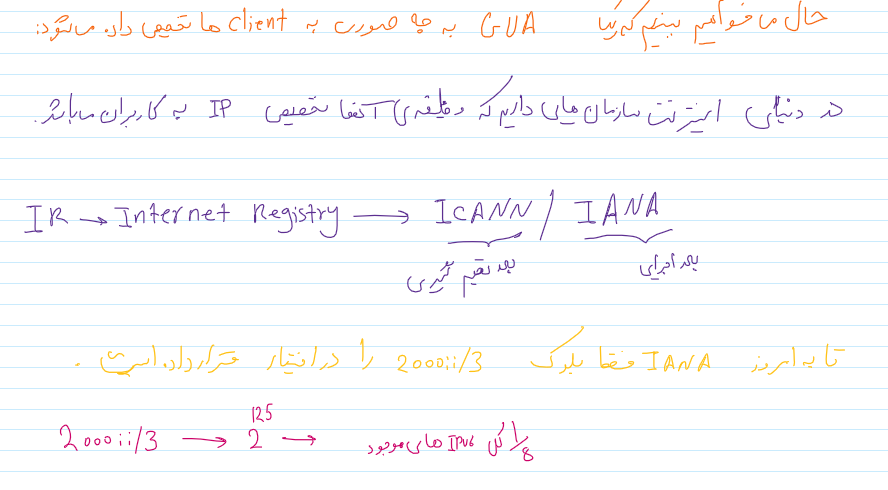 حال می خواهیم ببینیم که یک GUA به چه صورت به client ها تخصیص داده میشود:
در دنیای اینترنت سازمان هایی داریم که وظیفه ی آنها تخصیص IP به کاربران میباشد.
IR → Internet Registry → ICANN / IANA
بعد تصمیم گیری
بعد اجرایی
تا به امروز IANA فقط بلوک 2000::/3 را در اختیار قرار داده است.
2000::/3 → 2^125 → 1/8 کل IPv6 های موجود